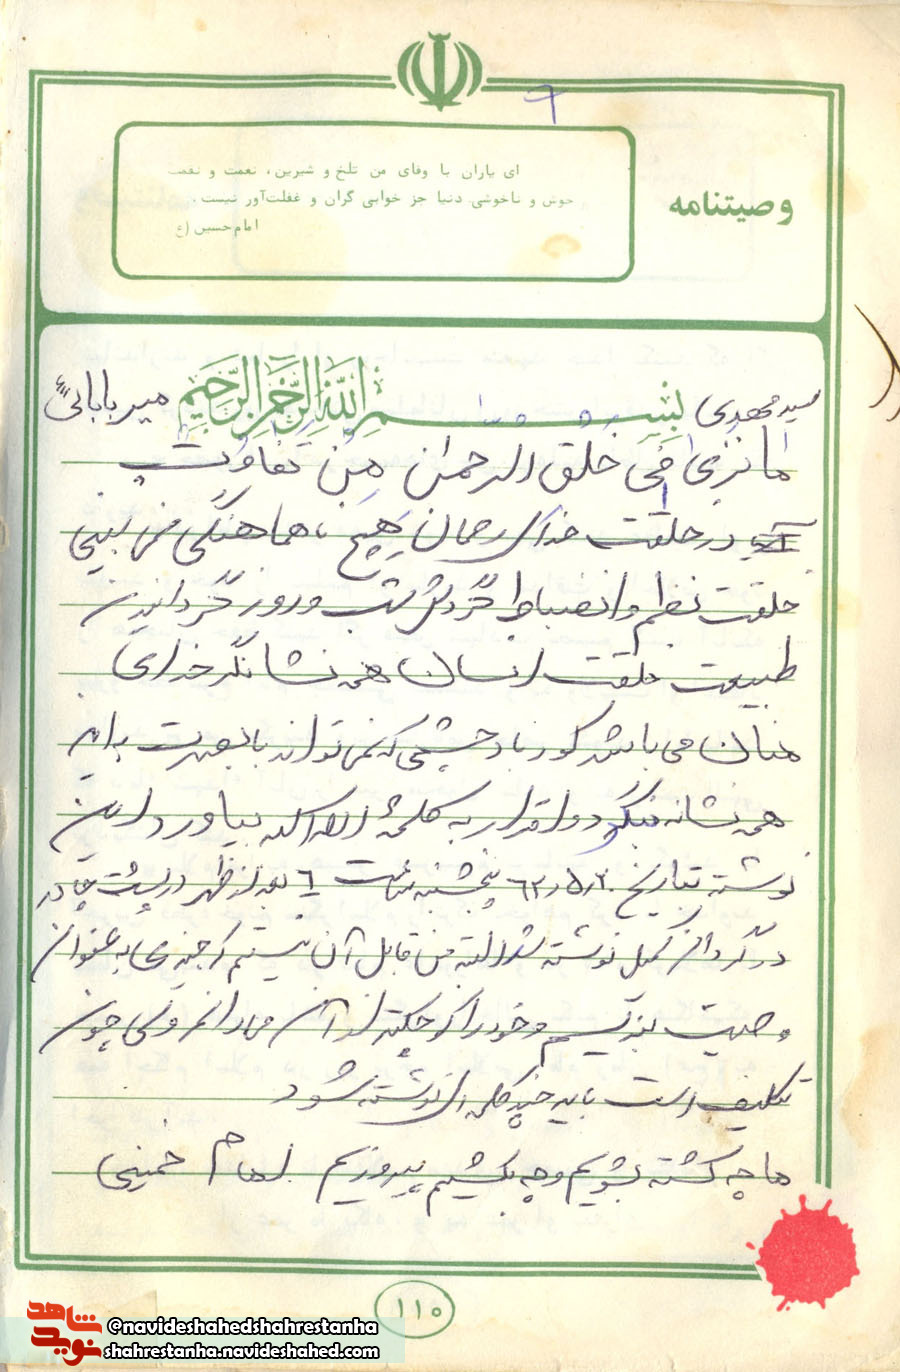 ٦
ای یاران با وفای من تلخ و شیرین، نعمت و نقمت
خوش و ناخوشی دنیا جز خوابی گران و غفلت‌آور نیست.
امام حسین (ع
وصیتنامه
سید مهدی بسم الله الرحمن الرحیم میربابائی
ما تری فی خلق الرحمان من تفاوت
در خلقت خدای رحمان هیچ ناهماهنگی نمی بینی
خلقت نظم و انضباط گردش شب و روز گردانیدن
طبیعت خلقت انسان همه نشانگر خدای
منان می باشد کور باد چشمی که نمی تواند با بصیرت به این
همه نشانه بنگرد و اقرار به کلمهٔ لا اله الا الله بیاورد این
نوشته بتاریخ ٦٣٫٥٫٢٠ پنجشنبه ساعت ٦ بعد از ظهر در پشت چادر
در گردان کمیل نوشته شد البته من قابل آن نیستم که چیزی به عنوان
وصیت بنویسم و خود را کوچکتر از آن میدانم ولی چون
تکلیف است باید چند کلمه ای نوشته شود
ما چه کشته بشویم و چه بکشیم پیروزیم امام خمینی
١١٠
شاهد
نوید
@navideshahedshahrestanha
shahrestanha.navideshahed.com